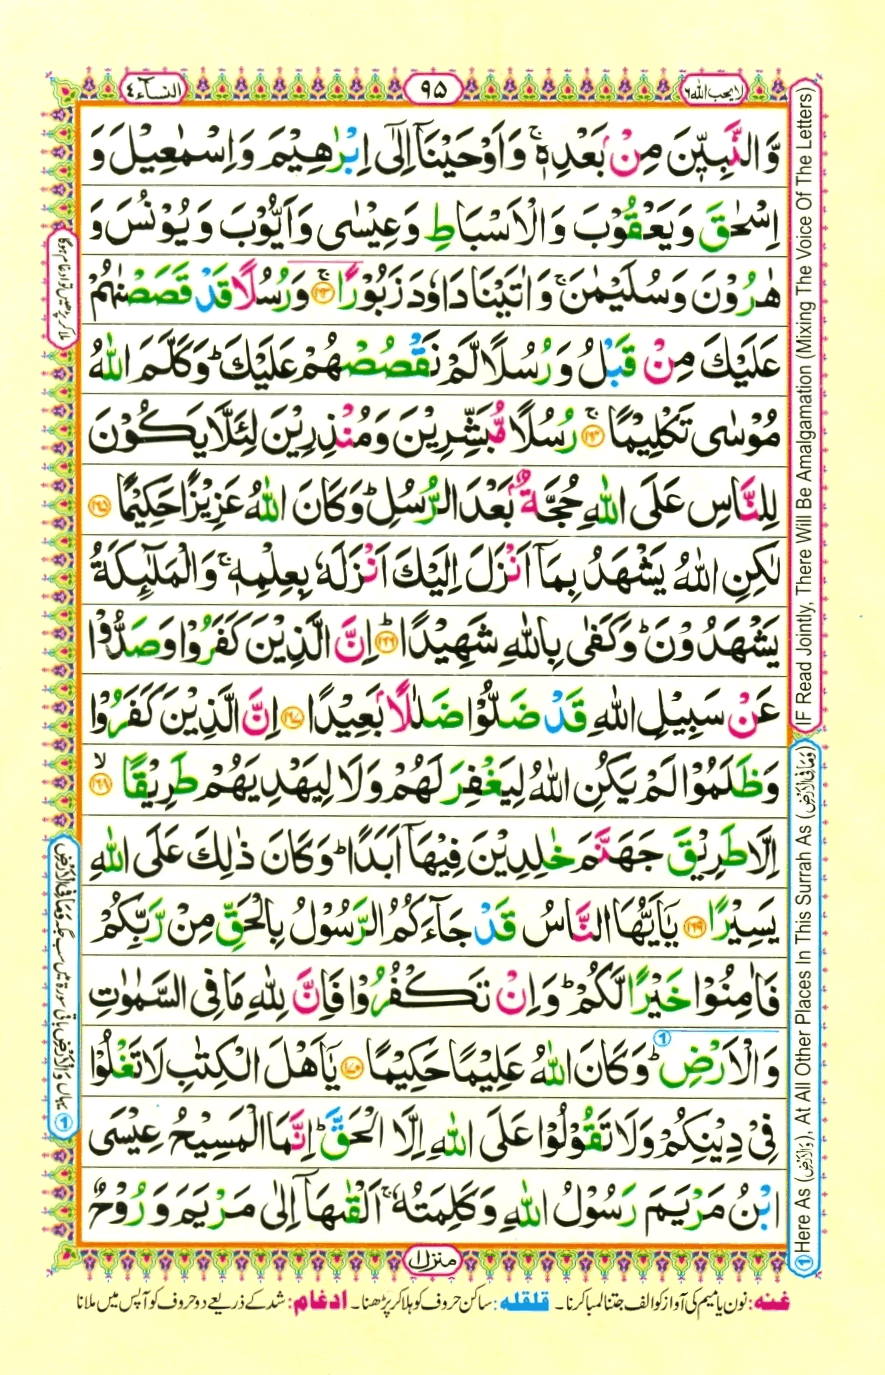 لا یحب اللہ ٦
٩٥
النساء ٤
وَّالنَّبِیّٖنَ مِنْۢ بَعْدِهٖ ۚ وَاَوْحَیْنَاۤ اِلٰۤی اِبْرٰهِیْمَ وَاِسْمٰعِیْلَ وَ
اِسْحٰقَ وَیَعْقُوْبَ وَالْاَسْبَاطِ وَعِیْسٰی وَاَیُّوْبَ وَیُوْنُسَ وَ
هٰرُوْنَ وَسُلَیْمٰنَ ۚ وَاٰتَیْنَا دَاوٗدَ زَبُوْرًا ۚ‏﴿١٦٣﴾ وَرُسُلًا قَدْ قَصَصْنٰهُمْ
عَلَیْكَ مِنْ قَبْلُ وَرُسُلًا لَّمْ نَقْصُصْهُمْ عَلَیْكَ ؕ وَكَلَّمَ اللّٰهُ
مُوْسٰی تَكْلِیْمًا ۚ‏﴿١٦٤﴾ رُسُلًا مُّبَشِّرِیْنَ وَمُنْذِرِیْنَ لِئَلَّا یَكُوْنَ
لِلنَّاسِ عَلَی اللّٰهِ حُجَّةٌۢ بَعْدَ الرُّسُلِ ؕ وَكَانَ اللّٰهُ عَزِیْزًا حَكِیْمًا ﴿١٦٥﴾
لٰكِنِ اللّٰهُ یَشْهَدُ بِمَاۤ اَنْزَلَ اِلَیْكَ اَنْزَلَهٗ بِعِلْمِهٖ ۚ وَالْمَلٰٓئِكَةُ
یَشْهَدُوْنَ ؕ وَكَفٰی بِاللّٰهِ شَهِیْدًا ؕ‏﴿١٦٦﴾ اِنَّ الَّذِیْنَ كَفَرُوْا وَصَدُّوْا
عَنْ سَبِیْلِ اللّٰهِ قَدْ ضَلُّوْا ضَلٰلًاۢ بَعِیْدًا ﴿١٦٧﴾ اِنَّ الَّذِیْنَ كَفَرُوْا
وَظَلَمُوْا لَمْ یَكُنِ اللّٰهُ لِیَغْفِرَ لَهُمْ وَلَا لِیَهْدِیَهُمْ طَرِیْقًا ۙ‏﴿١٦٨﴾
اِلَّا طَرِیْقَ جَهَنَّمَ خٰلِدِیْنَ فِیْهَاۤ اَبَدًا ؕ وَكَانَ ذٰلِكَ عَلَی اللّٰهِ
یَسِیْرًا ﴿١٦٩﴾ یٰۤاَیُّهَا النَّاسُ قَدْ جَآءَكُمُ الرَّسُوْلُ بِالْحَقِّ مِنْ رَّبِّكُمْ
فَاٰمِنُوْا خَیْرًا لَّكُمْ ؕ وَاِنْ تَكْفُرُوْا فَاِنَّ لِلّٰهِ مَا فِی السَّمٰوٰتِ
وَالْاَرْضِ ؕ ١ وَكَانَ اللّٰهُ عَلِیْمًا حَكِیْمًا ﴿١٧٠﴾ یٰۤاَهْلَ الْكِتٰبِ لَا تَغْلُوْا
فِیْ دِیْنِكُمْ وَلَا تَقُوْلُوْا عَلَی اللّٰهِ اِلَّا الْحَقَّ ؕ اِنَّمَا الْمَسِیْحُ عِیْسَی
ابْنُ مَرْیَمَ رَسُوْلُ اللّٰهِ وَكَلِمَتُهٗ ۚ اَلْقٰىهَاۤ اِلٰی مَرْیَمَ وَرُوْحٌ
منزل ١
غنہ: نون یا میم کی آواز کو الف جتنا لمبا کرنا۔ قلقلہ: ساکن حروف کو ہلا کر پڑھنا۔ ادغام: شد کے ذریعے دو حروف کو آپس میں ملانا
IF Read Jointly, There Will Be Amalgamation (Mixing The Voice Of The Letters)
① Here As (وَالْاَرْضِ), At All Other Places In This Surrah As (وَمَا فِی الْاَرْضِ)
ملا کر پڑھیں تو ادغام ہوگا
١ یہاں وَالْاَرْضِ باقی سورۃ میں سب جگہ وَمَا فِی الْاَرْضِ